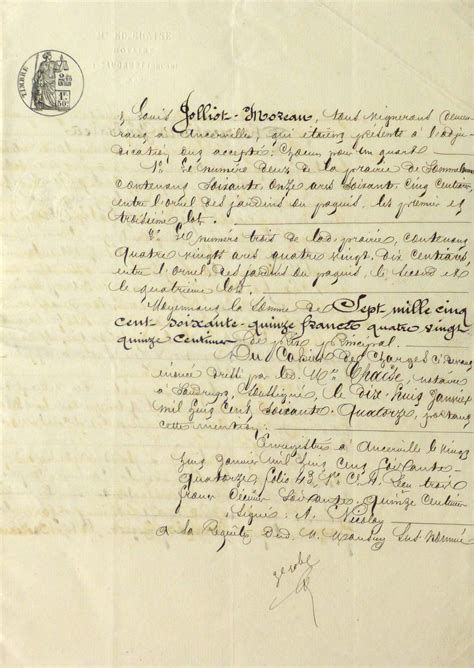 NOTAIRE
TIMBRE
& Louis Jolliot-Mozeau, tous vignerons demeu
rant à Ancerville, qui étaient présents à l'adju
dication, ont accepté, chacun pour un quart
1° Le numéro deux de la prairie de
contenant soixante onze ars soixante cinq centiares
entre l'ornel des jardins du paquis, les premier et
troisième lot.
2° Le numéro trois de lad. prairie, contenant
quatre vingts ars quatre vingt dix centiares,
entre l'ornel des jardins du paquis, le second et
le quatrième lot.
Moyennant la somme de Sept mille cinq
cent soixante-quinze francs quatre vingt
quinze centimes de prix principal.
Du Cahier des Charges ci-devant
énoncé dressé par led. Me Chaise, notaire
à Saudrupt, soussigné, le dix huit janvier
mil huit cent soixante-Quatorze, portant
cette mention:
Enregistré à Ancerville le vingt
janvier mil huit cent soixante
Quatorze, folio 43, Reçu trois
francs Décimes soixante-quinze centimes
Signé: A.
a la Requête dud. M. Mansuy sus nommé